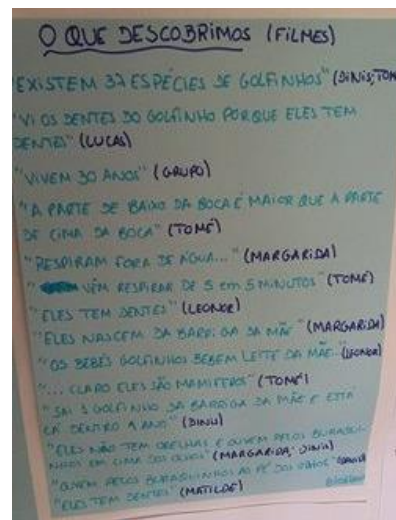 O QUE DESCOBRIMOS (FILMES)
"EXISTEM 37 ESPÉCIES DE GOLFINHOS" (DINIS, TOM
"VI OS DENTES DO GOLFINHO PORQUE ELES TEM
DENTES" (LUCAS)
"VIVEM 30 ANOS" (GRUPO)
"A PARTE DE BAIXO DA BOCA É MAIOR QUE A PARTE
DE CIMA DA BOCA" (TOMÉ)
"RESPIRAM FORA DE ÁGUA..." (MARGARIDA)
" VÊM RESPIRAR DE 5 em 5 MINUTOS" (TOMÉ)
"ELES TEM DENTES" (LEONOR)
"ELES NASCEM DA BARRIGA DA MÃE" (MARGARIDA)
"OS BEBÉS GOLFINHOS BEBEM LEITE DA MÃE.." (LEONOR)
"... CLARO ELES SÃO MAMIFEROS" (TOMÉ)
"SAI 1 GOLFINHO DA BARRIGA DA MÃE E ESTÁ
LÁ DENTRO 1 ANO" (DINIS)
"ELES NÃO TEM ORELHAS E OUVEM PELOS BURAQUI-
NHOS EM CIMA DOS OLHOS" (MARGARIDA; DINIS)
"OUVEM PELOS BURAQUINHOS AO PÉ DOS OLHOS"
"ELES TEM DENTES" (MATILDE)